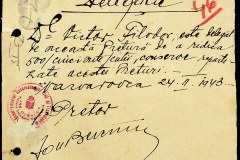 Delegație
46
Dl. Victor Filodor, este delegat
de această Pretură de a ridica
500/cinci sute/ cutii, conserve repar-
zate acestei Preturi.
Varvarovca 24.II.1943.
Pretor